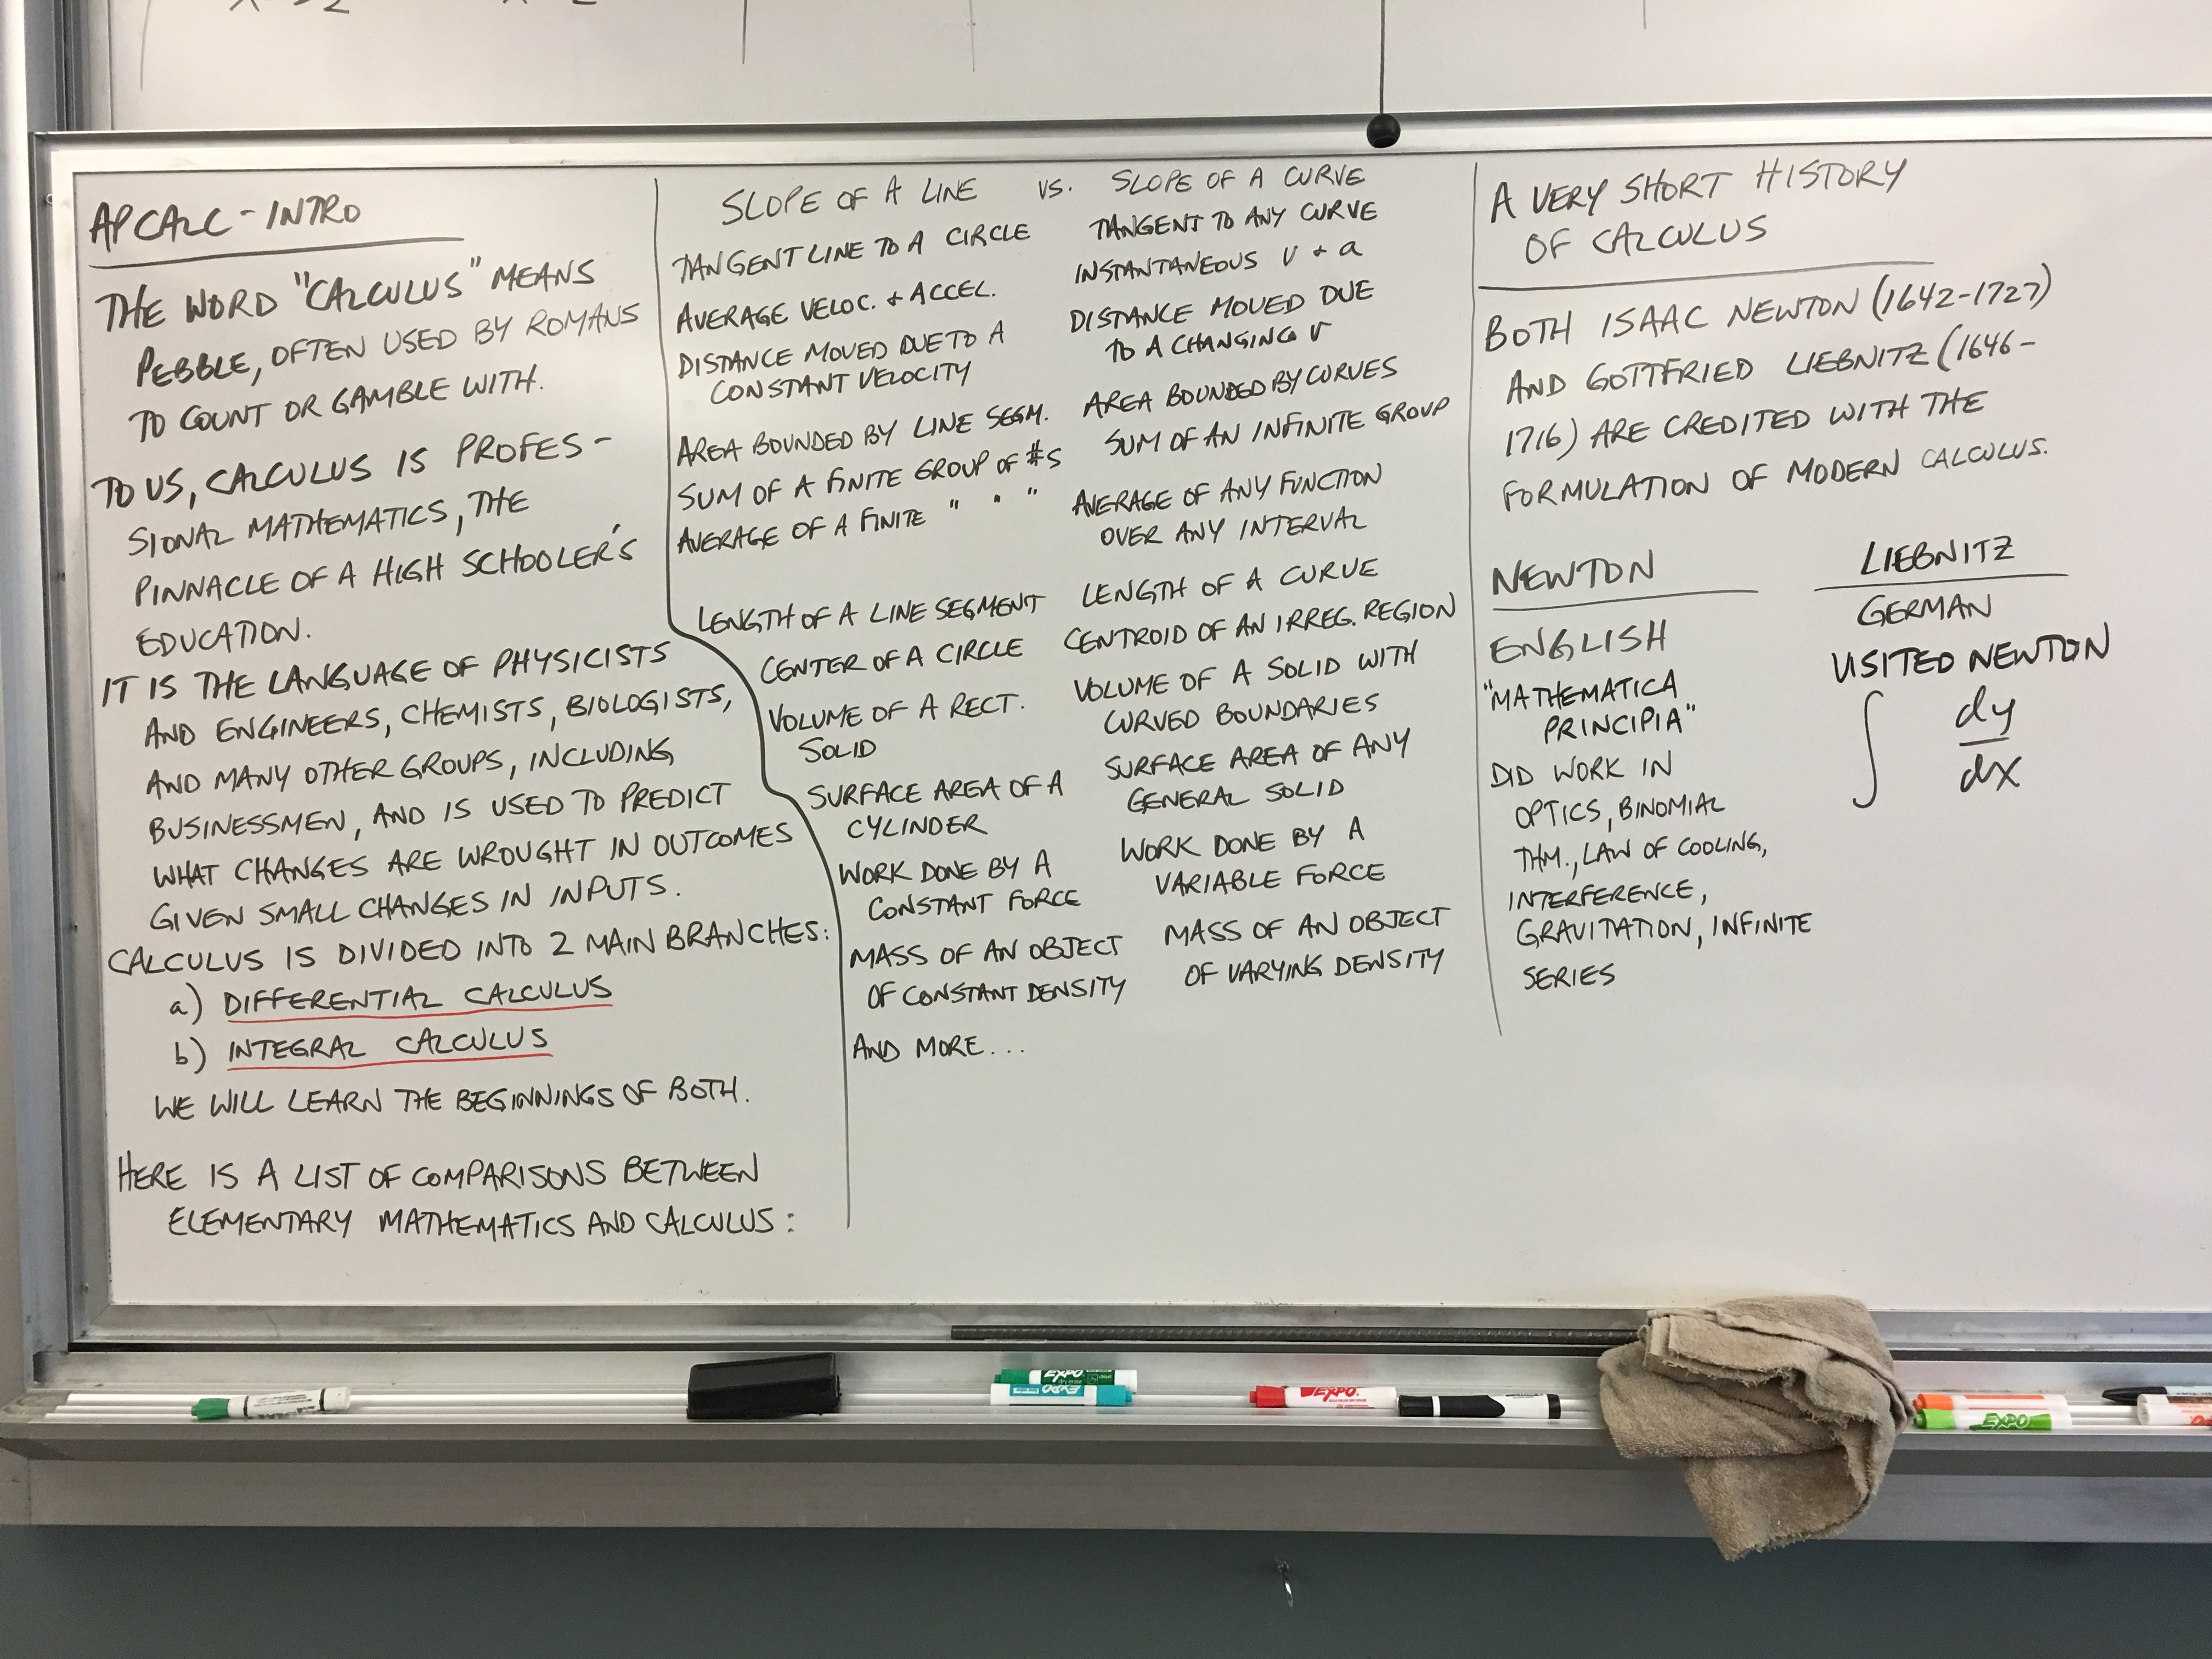 AP CALC - INTRO
THE WORD "CALCULUS" MEANS
PEBBLE, OFTEN USED BY ROMANS
TO COUNT OR GAMBLE WITH.
TO US, CALCULUS IS PROFES-
SIONAL MATHEMATICS, THE
PINNACLE OF A HIGH SCHOOLER'S
EDUCATION.
IT IS THE LANGUAGE OF PHYSICISTS
AND ENGINEERS, CHEMISTS, BIOLOGISTS,
AND MANY OTHER GROUPS, INCLUDING
BUSINESSMEN, AND IS USED TO PREDICT
WHAT CHANGES ARE WROUGHT IN OUTCOMES
GIVEN SMALL CHANGES IN INPUTS.
CALCULUS IS DIVIDED INTO 2 MAIN BRANCHES:
a) DIFFERENTIAL CALCULUS
b) INTEGRAL CALCULUS
WE WILL LEARN THE BEGINNINGS OF BOTH.
HERE IS A LIST OF COMPARISONS BETWEEN
ELEMENTARY MATHEMATICS AND CALCULUS:
SLOPE OF A LINE vs. SLOPE OF A CURVE
TANGENT LINE TO A CIRCLE
AVERAGE VELOC. + ACCEL.
DISTANCE MOVED DUE TO A
CONSTANT VELOCITY
AREA BOUNDED BY LINE SEGM.
SUM OF A FINITE GROUP OF #S
AVERAGE OF A FINITE " " "
LENGTH OF A LINE SEGMENT
CENTER OF A CIRCLE
VOLUME OF A RECT.
SOLID
SURFACE AREA OF A
CYLINDER
WORK DONE BY A
CONSTANT FORCE
MASS OF AN OBJECT
OF CONSTANT DENSITY
AND MORE...
TANGENT TO ANY CURVE
INSTANTANEOUS v + a
DISTANCE MOVED DUE
TO A CHANGING v
AREA BOUNDED BY CURVES
SUM OF AN INFINITE GROUP
AVERAGE OF ANY FUNCTION
OVER ANY INTERVAL
LENGTH OF A CURVE
CENTROID OF AN IRREG. REGION
VOLUME OF A SOLID WITH
CURVED BOUNDARIES
SURFACE AREA OF ANY
GENERAL SOLID
WORK DONE BY A
VARIABLE FORCE
MASS OF AN OBJECT
OF VARYING DENSITY
A VERY SHORT HISTORY
OF CALCULUS
BOTH ISAAC NEWTON (1642-1727)
AND GOTTFRIED LIEBNITZ (1646-
1716) ARE CREDITED WITH THE
FORMULATION OF MODERN CALCULUS.
NEWTON
ENGLISH
"MATHEMATICA
PRINCIPIA"
DID WORK IN
OPTICS, BINOMIAL
THM., LAW OF COOLING,
INTERFERENCE,
GRAVITATION, INFINITE
SERIES
LIEBNITZ
GERMAN
VISITED NEWTON
∫ dy
dx
EXPO
EXPO
EXPO
EXPO